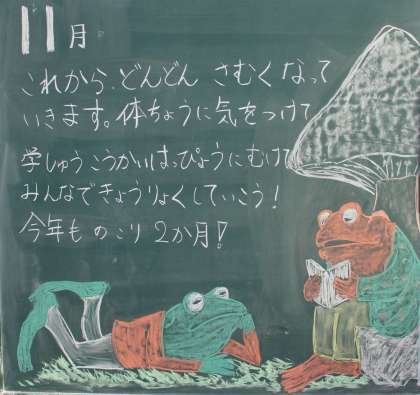 11月
これから、どんどん さむくなって
いきます。体ちょうに気をつけて
学しゅうこうかいはっぴょうにむけて
みんなできょうりょくしていこう!
今年ものこり2か月!